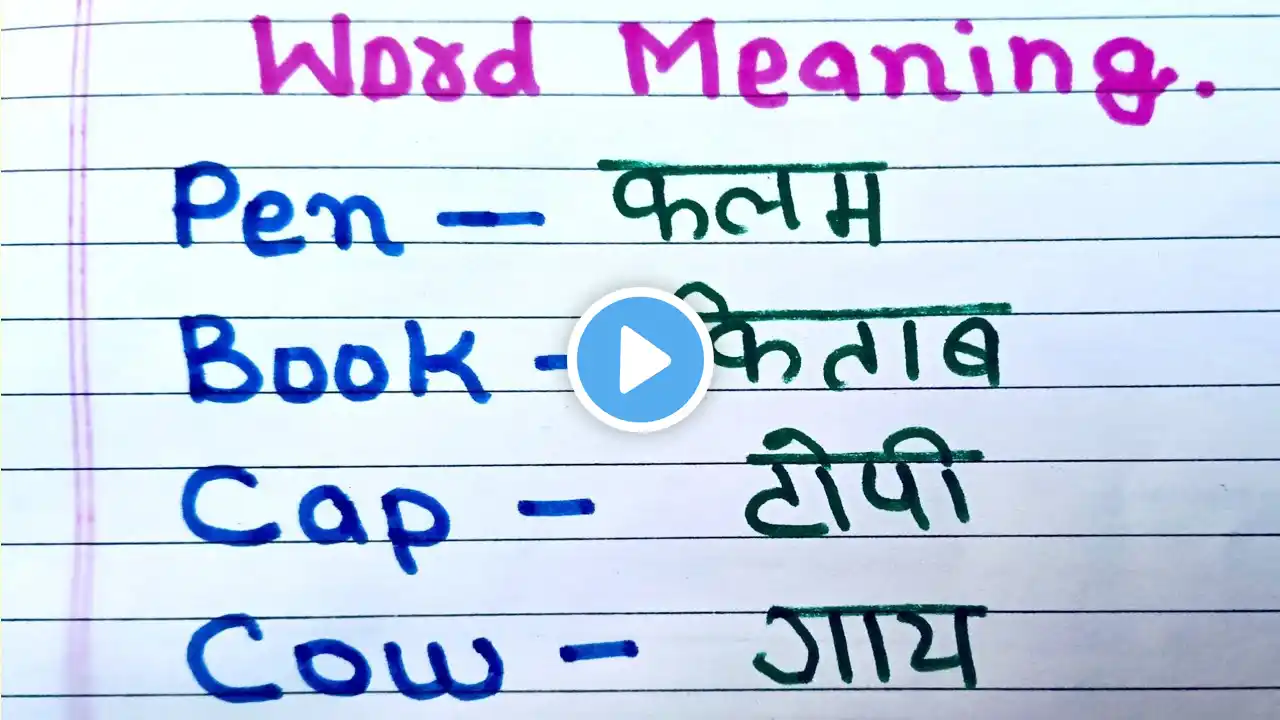 Word Meaning.
Pen — कलम
Book - किताब
Cap - टोपी
Cow - गाय